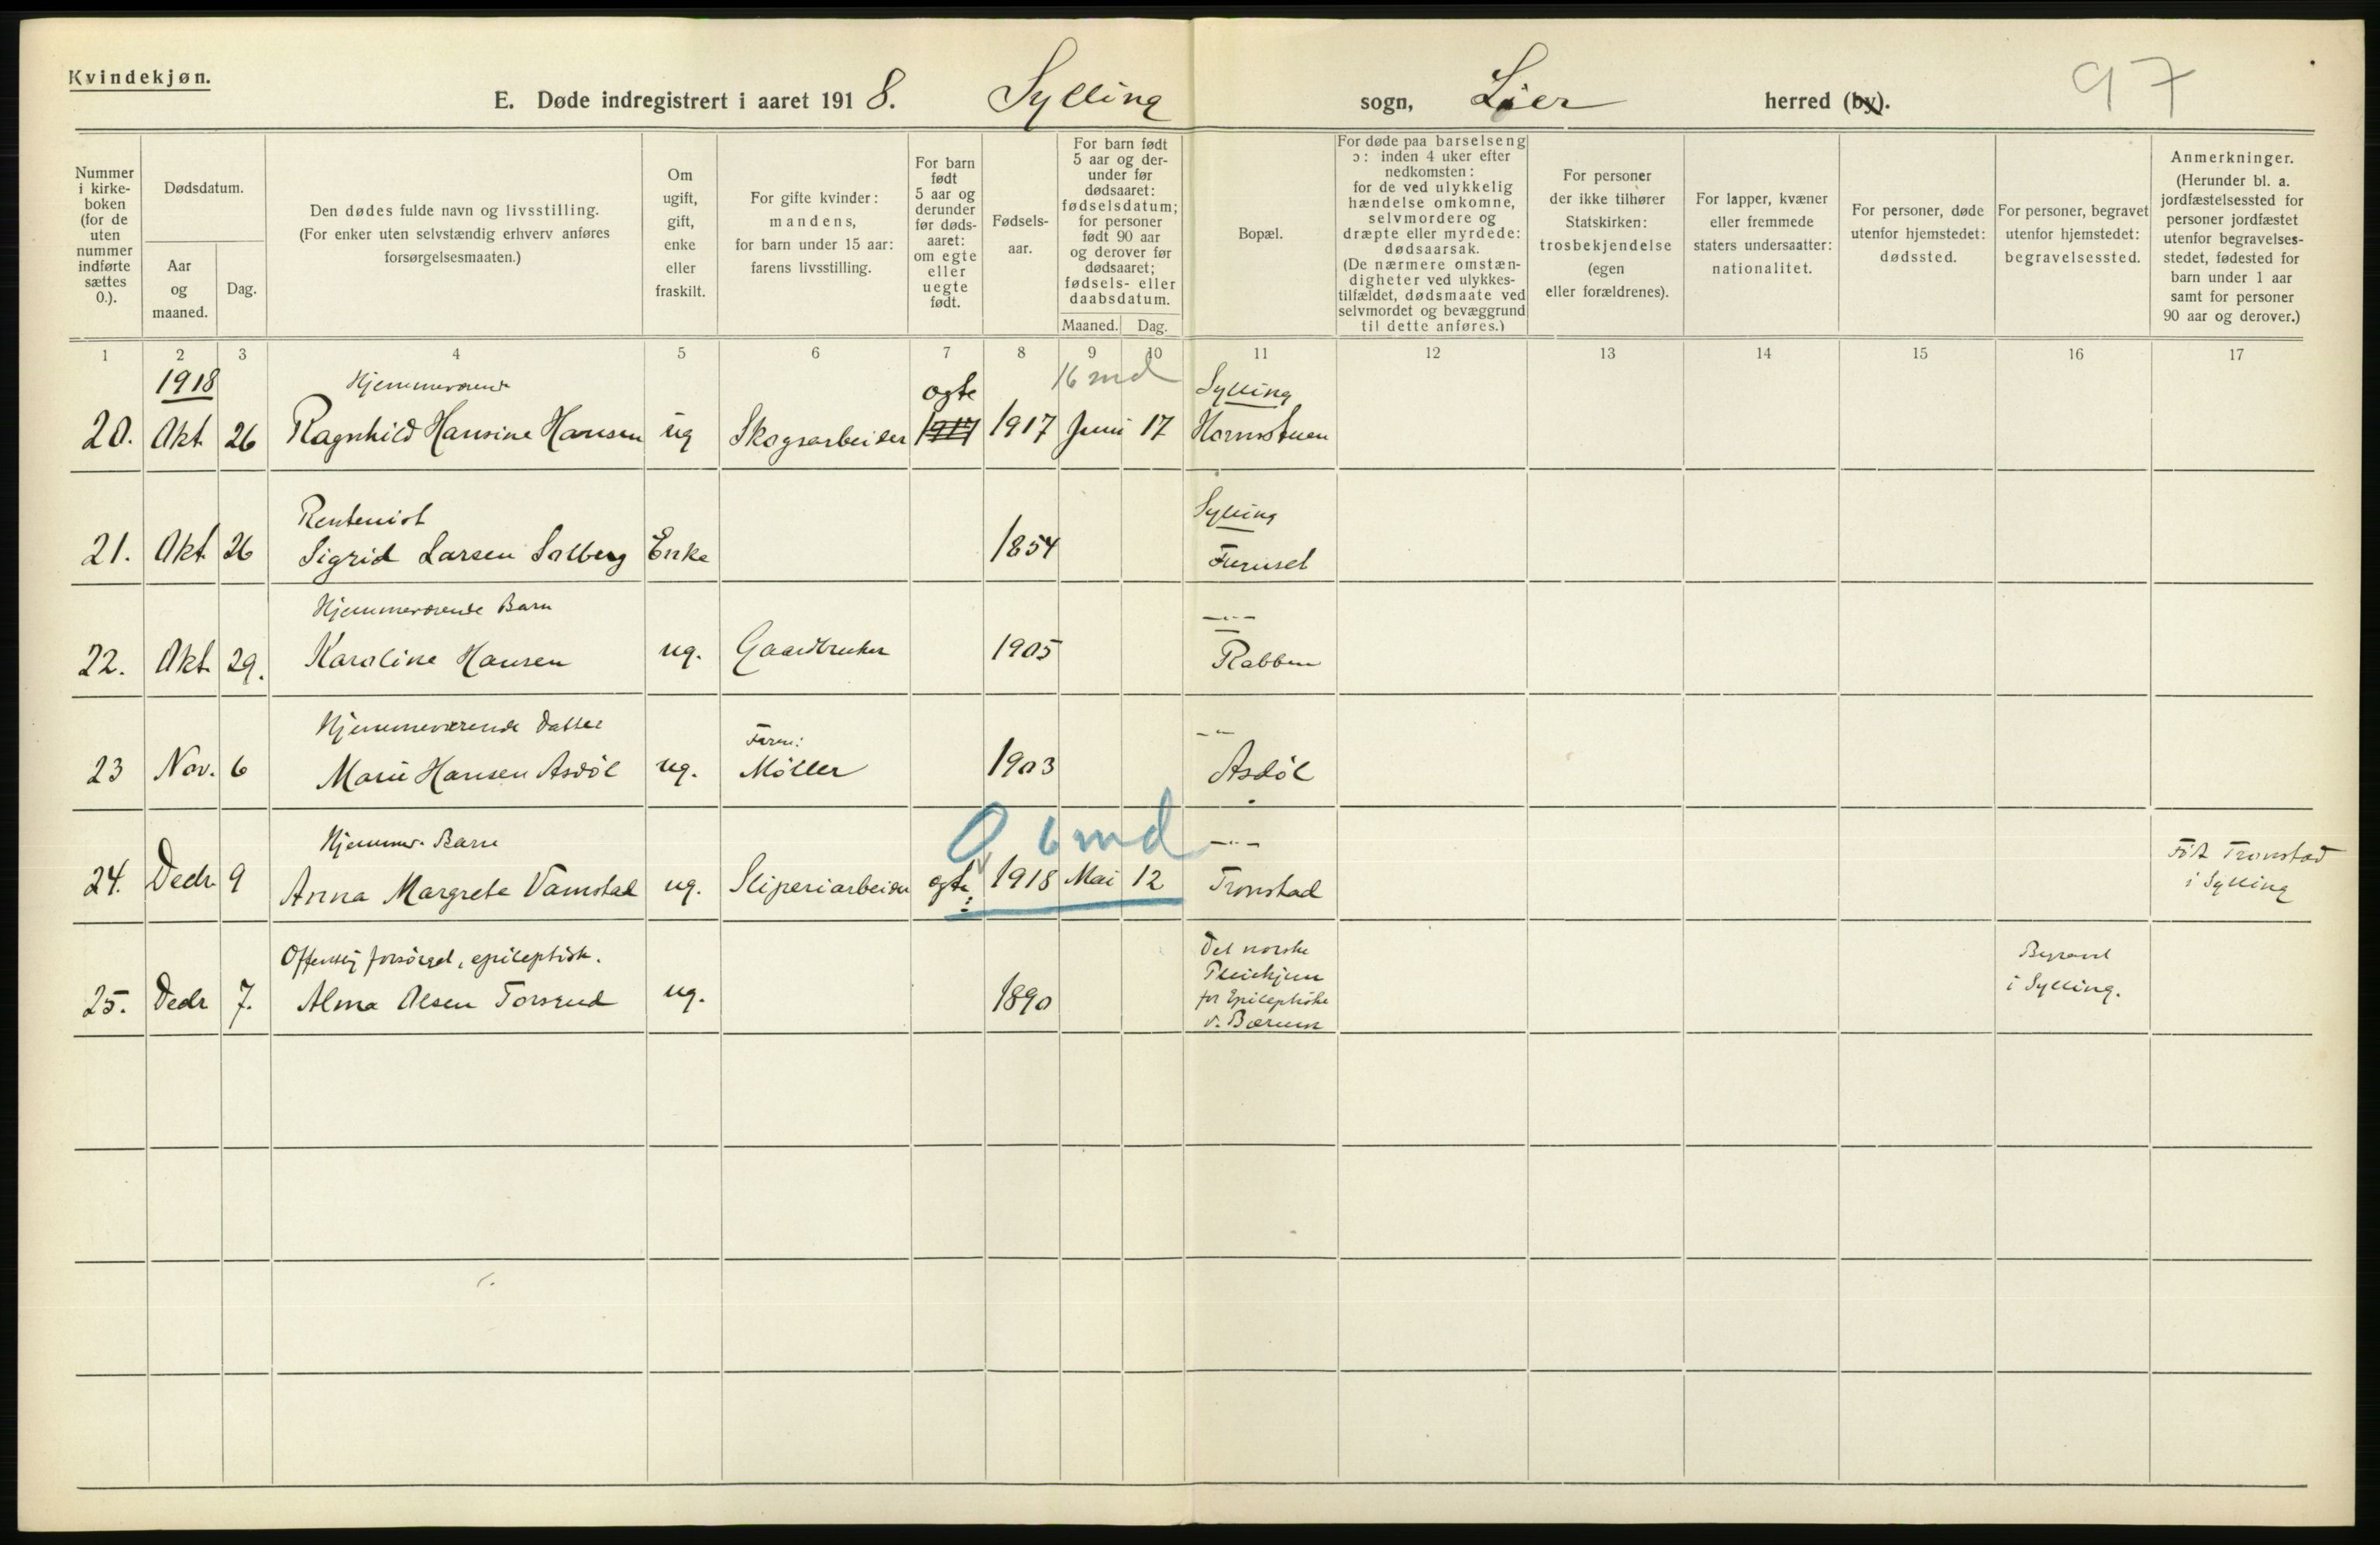 Kvindekjøn.
E. Døde indregistrert i aaret 1918. Sylling sogn, Lier herred (by).
97
Nummer i kirkeboken (for de uten nummer indførte sættes 0.).
Dødsdatum.
Aar og maaned.
Dag.
Den dødes fulde navn og livsstilling.
(For enker uten selvstændig erhverv anføres forsørgelsesmaaten.)
Om ugift, gift, enke eller fraskilt.
For gifte kvinder: mandens, for barn under 15 aar: farens livsstilling.
For barn født 5 aar og derunder før dødsaaret: om egte eller uegte født.
Fødselsaar.
For barn født 5 aar og derunder før dødsaaret: fødselsdatum; for personer født 90 aar og derover før dødsaaret; fødsels- eller daabsdatum.
Maaned. Dag.
Bopæl.
For døde paa barselseng ɔ: inden 4 uker efter nedkomsten: for de ved ulykkelig hændelse omkomne, selvmordere og dræpte eller myrdede: dødsaarsak. (De nærmere omstændigheter ved ulykkestilfældet, dødsmaate ved selvmordet og bevæggrund til dette anføres.)
For personer der ikke tilhører Statskirken: trosbekjendelse (egen eller forældrenes).
For lapper, kvæner eller fremmede staters undersaatter: nationalitet.
For personer, døde utenfor hjemstedet: dødssted.
For personer, begravet utenfor hjemstedet: begravelsessted.
Anmerkninger. (Herunder bl. a. jordfæstelsessted for personer jordfæstet utenfor begravelsesstedet, fødested for barn under 1 aar samt for personer 90 aar og derover.)
1 2 3 4 5 6 7 8 9 10 11 12 13 14 15 16 17
1918 Hjemmeværende egte 16 md Sylling
20. Okt. 26 Ragnhild Hansine Hansen ug Skogsarbeider 1917 1917 Juni 17 Hornstuen
Rentenist Sylling
21. Okt. 26 Sigrid Larsen Solberg Enke 1854 Furuset
Hjemmeværende Barn —"—
22. Okt. 29. Karoline Hansen ug. Gaardbruker 1905 Rabben
Hjemmeværende Datter Faren: —"—
23 Nov. 6 Marie Hansen Asdøl ug. Møller 1903 Asdøl
Hjemmev. Barn 0 6 md —"— Født Tronstad
24. Decbr 9 Anna Margrete Vamstad ug. Sliperiarbeider egte 1918 Mai 12 Tronstad i Sylling
Offentlig forsørget, epileptisk. Det norske Pleiehjem for Epileptiske v. Bærum
25. Decbr 7. Alma Olsen Torsrud ug. 1890 Begravet i Sylling.